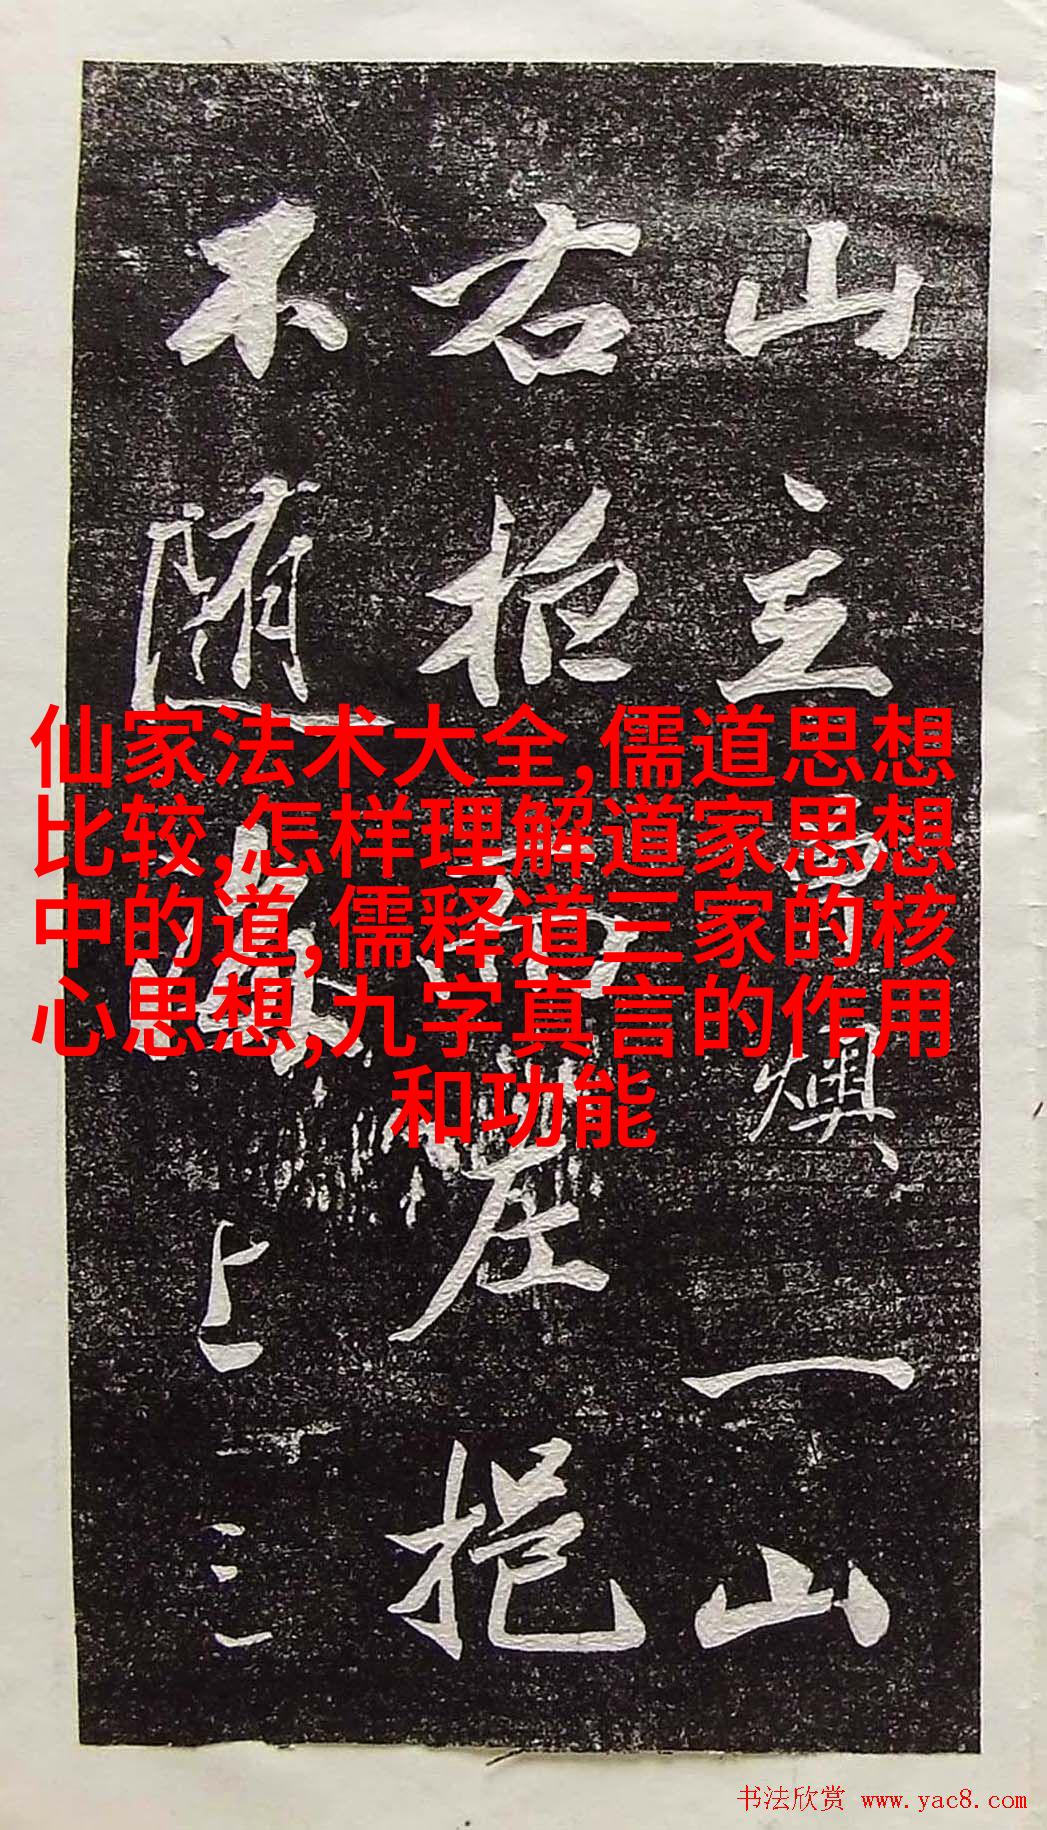 山主冔燠、一山
右柜
左挹
不随
上三
仙家法术大全,儒道思想
比较,怎样理解道家思想
中的道,儒释道三家的核
心思想,九字真言的作用
和功能
书法欣赏 www.yac8.com